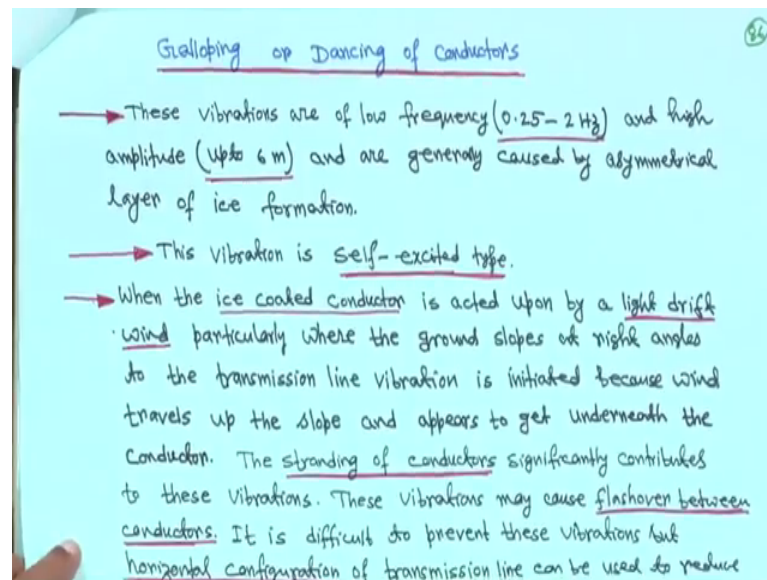 86
Galloping or Dancing of Conductors
These vibrations are of low frequency (0.25 - 2 Hz) and high
amplitude (upto 6 m) and are generally caused by asymmetrical
layer of ice formation.
This vibration is self-excited type.
When the ice coated conductor is acted upon by a light drift
wind particularly where the ground slopes at right angles
to the transmission line vibration is initiated because wind
travels up the slope and appears to get underneath the
conductor. The stranding of conductors significantly contributes
to these vibrations. These vibrations may cause flashover between
conductors. It is difficult to prevent these vibrations but
horizontal configuration of transmission line can be used to reduce